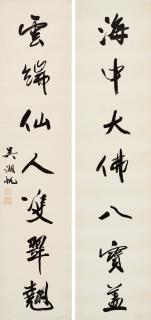 海中大佛八寶蓋
雲端仙人雙翠翹
吳湖帆